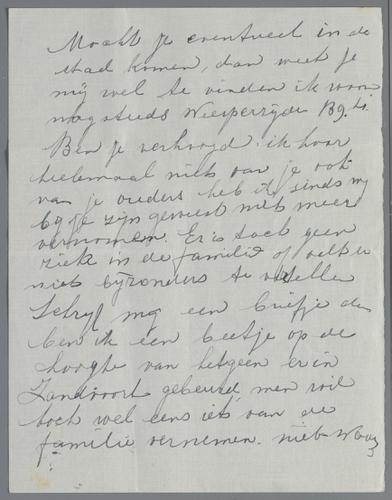 Mocht je eventueel in de
stad komen, dan weet je
mij wel te vinden ik woon
nog steeds Weesperzijde 89
Ben je verhoogd? ik hoor
heelemaal niets van je ook
van je ouders heb ik sinds wij
bij je zijn geweest niets meer
vernomen. Er is toch geen
ziek in de familie of valt er
niets bijzonders te vertellen
Schrijf mij een briefje dan
ben ik een beetje op de
hoogte van hetgeen er in
Zandvoort gebeurd, men wil
toch wel eens iets van de
familie vernemen. niet waar